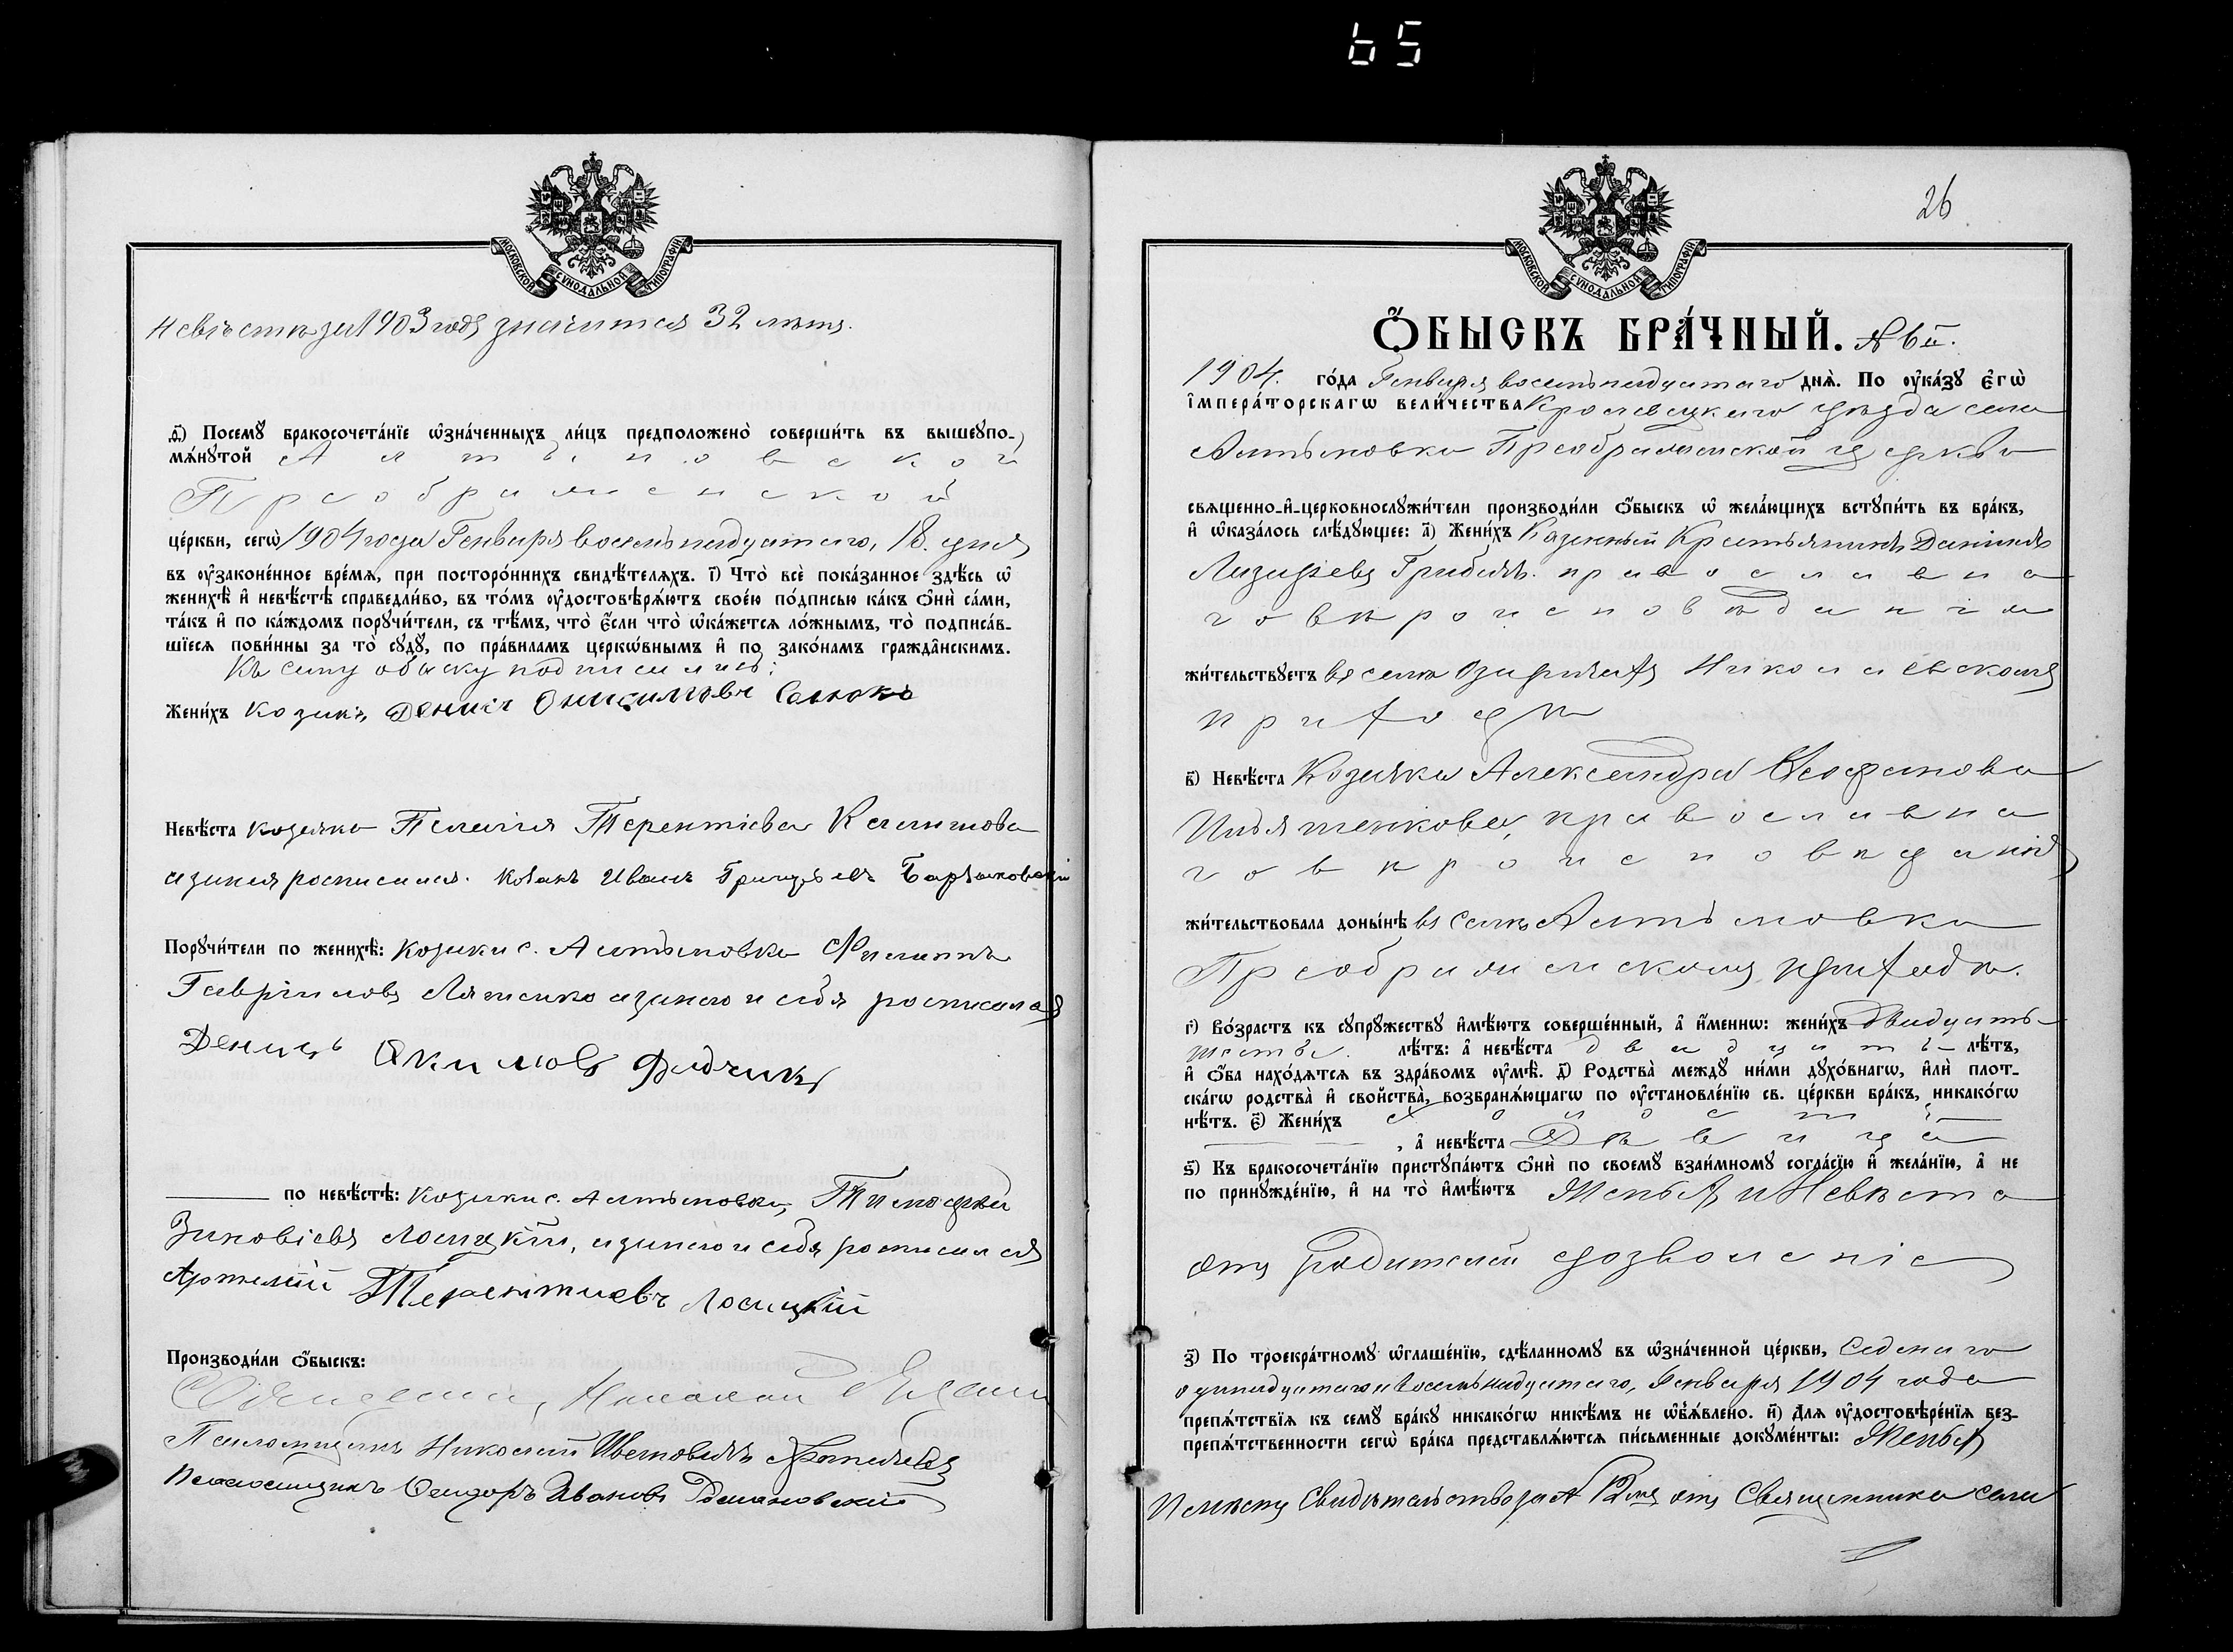 65
МОСКОВСКОЙ СУНОДАЛЬНОЙ ТИПОГРАФІИ
невѣста за 1903 годъ значится 32 лѣтъ.
Посемꙋ̀ бракосочета́нїе ѡ҆зна́ченныхъ ли́цъ предположено̀ соверши́ть въ вышеꙋпо-
мѧ́нꙋтой Алтыновской
Преображенской
це́ркви, сегѡ̀ 1904 года Генваря восемьнадцатаго, 18. дня
въ ᲂу҆законе́нное вре́мѧ, при посторо́ннихъ свидѣ́телѧхъ. і҃) Что̀ всѐ пока́занное здѣ́сь ѡ҆
женихѣ̀ и҆ невѣ́стѣ справедли́во, въ то́мъ ᲂу҆достовѣрѧ́ютъ свое́ю по́дписью ка́къ ѻ҆нѝ са́ми,
та́къ и҆ по ка́ждомъ порꙋчи́тели, съ тѣ́мъ, что̀ є҆́сли что̀ ѡ҆ка́жетсѧ ло́жнымъ, то̀ подписа́в-
шїесѧ пови́нны за то̀ сꙋдꙋ̀, по пра́виламъ церкѡ́внымъ и҆ по зако́намъ гражда̑нскимъ.
Къ сему обыску подписались:
Жени́хъ козакъ Денисъ Онисимовъ Салюкъ
Невѣ́ста козачка Пелагія Терентіева
козакъ Иванъ
Порꙋчи́тели по женихѣ̀: козаки с. Алтыновки Филиппъ
Гавріиловъ Ляшенко а за него и себя росписался
Денисъ Якимовъ
по невѣ́стѣ: козаки с. Алтыновки, Тимофей
Зиновіевъ Лосицкій, а за него и себя росписался
Артемій Терентиевъ Лосицкій
Производи́ли ѻ҆́быскъ:
Священникъ Николай
Псаломщикъ Николай
Псаломщикъ Ивановъ Романовскій
26
МОСКОВСКОЙ СУНОДАЛЬНОЙ ТИПОГРАФІИ
Ѻ҆́БЫСКЪ БРА́ЧНЫЙ. № 6й.
1904. го́да Генваря восемьнадцатаго днѧ̀. По ᲂу҆ка́зꙋ є҆гѡ̀
і҆мпера́торскагѡ вели́чества Кролевецкаго уѣзда села
Алтыновки Преображенской церкви
свѧщенно-и҆-церковнослꙋжи́тели производи́ли ѻ҆́быскъ ѡ҆ жела́ющихъ встꙋпи́ть въ бра́къ,
и҆ ѡ҆каза́лось слѣ́дꙋющее: а҃) Жени́хъ Казенный Крестьянинъ Даніилъ
Лазаревъ Грибачъ. православна
го вѣроисповѣданія
жи́тельствꙋетъ въ селѣ Озаричахъ Николаевскомъ
приходѣ
в҃) Невѣ́ста Козачка Александра Феофанова
Ильяшенкова, православна
го вѣроисповѣданія
жи́тельствовала доны́нѣ въ селѣ Алтыновкѣ
Преображенскомъ приходѣ.
г҃) Во́зрастъ къ сꙋпрꙋ́жествꙋ и҆мѣ́ютъ соверше́нный, а҆ и҆́меннѡ: жени́хъ Двадцать
шесть. лѣ́тъ: а҆ невѣ́ста двадцать лѣ́тъ,
и҆ ѻ҆́ба нахо́дѧтсѧ въ здра́вомъ ᲂу҆мѣ̀. д҃) Родства̀ междꙋ ни́ми дꙋхо́внагѡ, и҆лѝ плот-
ска́гѡ родства̀ и҆ сво́йства, возбранѧ́ющагѡ по ᲂу҆становле́нїю св. це́ркви бра́къ, никако́гѡ
нѣ́тъ. є҃) Жени́хъ холостъ
, а҆ невѣ́ста Дѣвица
ѕ҃) Къ бракосочета́нїю пристꙋпа́ютъ ѻ҆нѝ по своемꙋ̀ взаи́мномꙋ согла́сїю и҆ жела́нїю, а҆ не
по принꙋжде́нїю, и҆ на то̀ и҆мѣ́ютъ Женихъ и Невѣста
отъ родителей дозволеніе
з҃) По троекра́тномꙋ ѡ҆глаше́нїю, сдѣ́ланномꙋ въ ѡ҆зна́ченной це́ркви, Седмаго
одинадцатаго и восемьнадцатаго, Генваря 1904 года
препѧ́тствїѧ къ семꙋ̀ бра́кꙋ никако́гѡ никѣ́мъ не ѡ҆б̾ѧ́влено. и҃) Длѧ ᲂу҆достовѣре́нїѧ без-
препѧ́тственности сегѡ̀ бра́ка представлѧ́ютсѧ пи́сьменные докꙋме́нты: Женихъ
Свидѣтельство за № 12мъ отъ Священника села